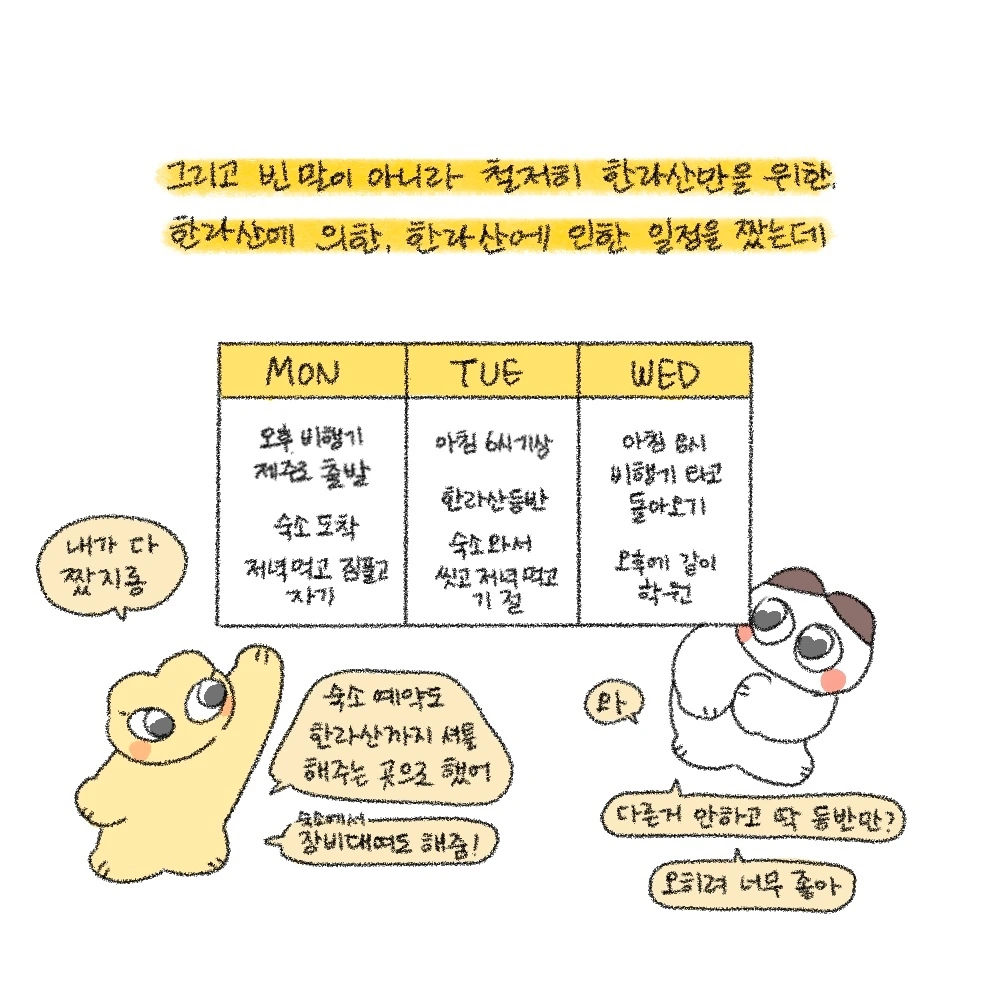 그리고 빈말이 아니라 철저히 한라산만을 위한,
한라산에 의한, 한라산에 인한 일정을 짰는데
MON
오후 비행기
제주로 출발
숙소 도착
저녁먹고 짐풀고
자기
TUE
아침 6시기상
한라산등반
숙소와서
씻고 저녁먹고
기절
WED
아침 8시
비행기 타고
돌아오기
오후에 같이
학원
내가 다
짰지롱
숙소 예약도
한라산까지 셔틀
해주는 곳으로 했어
숙소에서
장비대여도 해줌!
와
다른거 안하고 딱 등반만?
오히려 너무 좋아